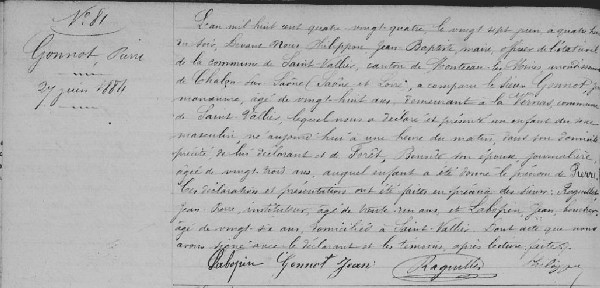 No 81
Gonnot, Pierre
27 juin 1884
L'an mil huit cent quatre vingt quatre, le vingt sept juin à quatre heures
du soir, devant nous Philippon Jean Baptiste, maire, officier de l'état civil
de la commune de Saint-Vallier, canton de Montceau-les-Mines, arrondissement
de Chalon sur Saône, Saône et Loire, a comparu le sieur Gonnot, Jean
âgé de vingt-huit ans, demeurant à la commune
de Saint Vallier, lequel nous a déclaré et présenté un enfant du sexe
masculin, né aujourd'hui à une heure du matin, dans son domicile
de lui déclarant et de Forêt, Benoîte son épouse, journalière
âgée de vingt trois ans, auquel enfant a été donné le prénom de Pierre,
Ces déclaration et présentation ont été faites en présence des sieurs: Raquillet
Jean instituteur, âgé de trente cinq ans, et Labopin Jean,
âgé de vingt six ans, domiciliés à Saint-Vallier. Dont acte que nous
avons signé avec le déclarant et les témoins, après lecture faite.
Labopin Gonnot Jean Raquillet